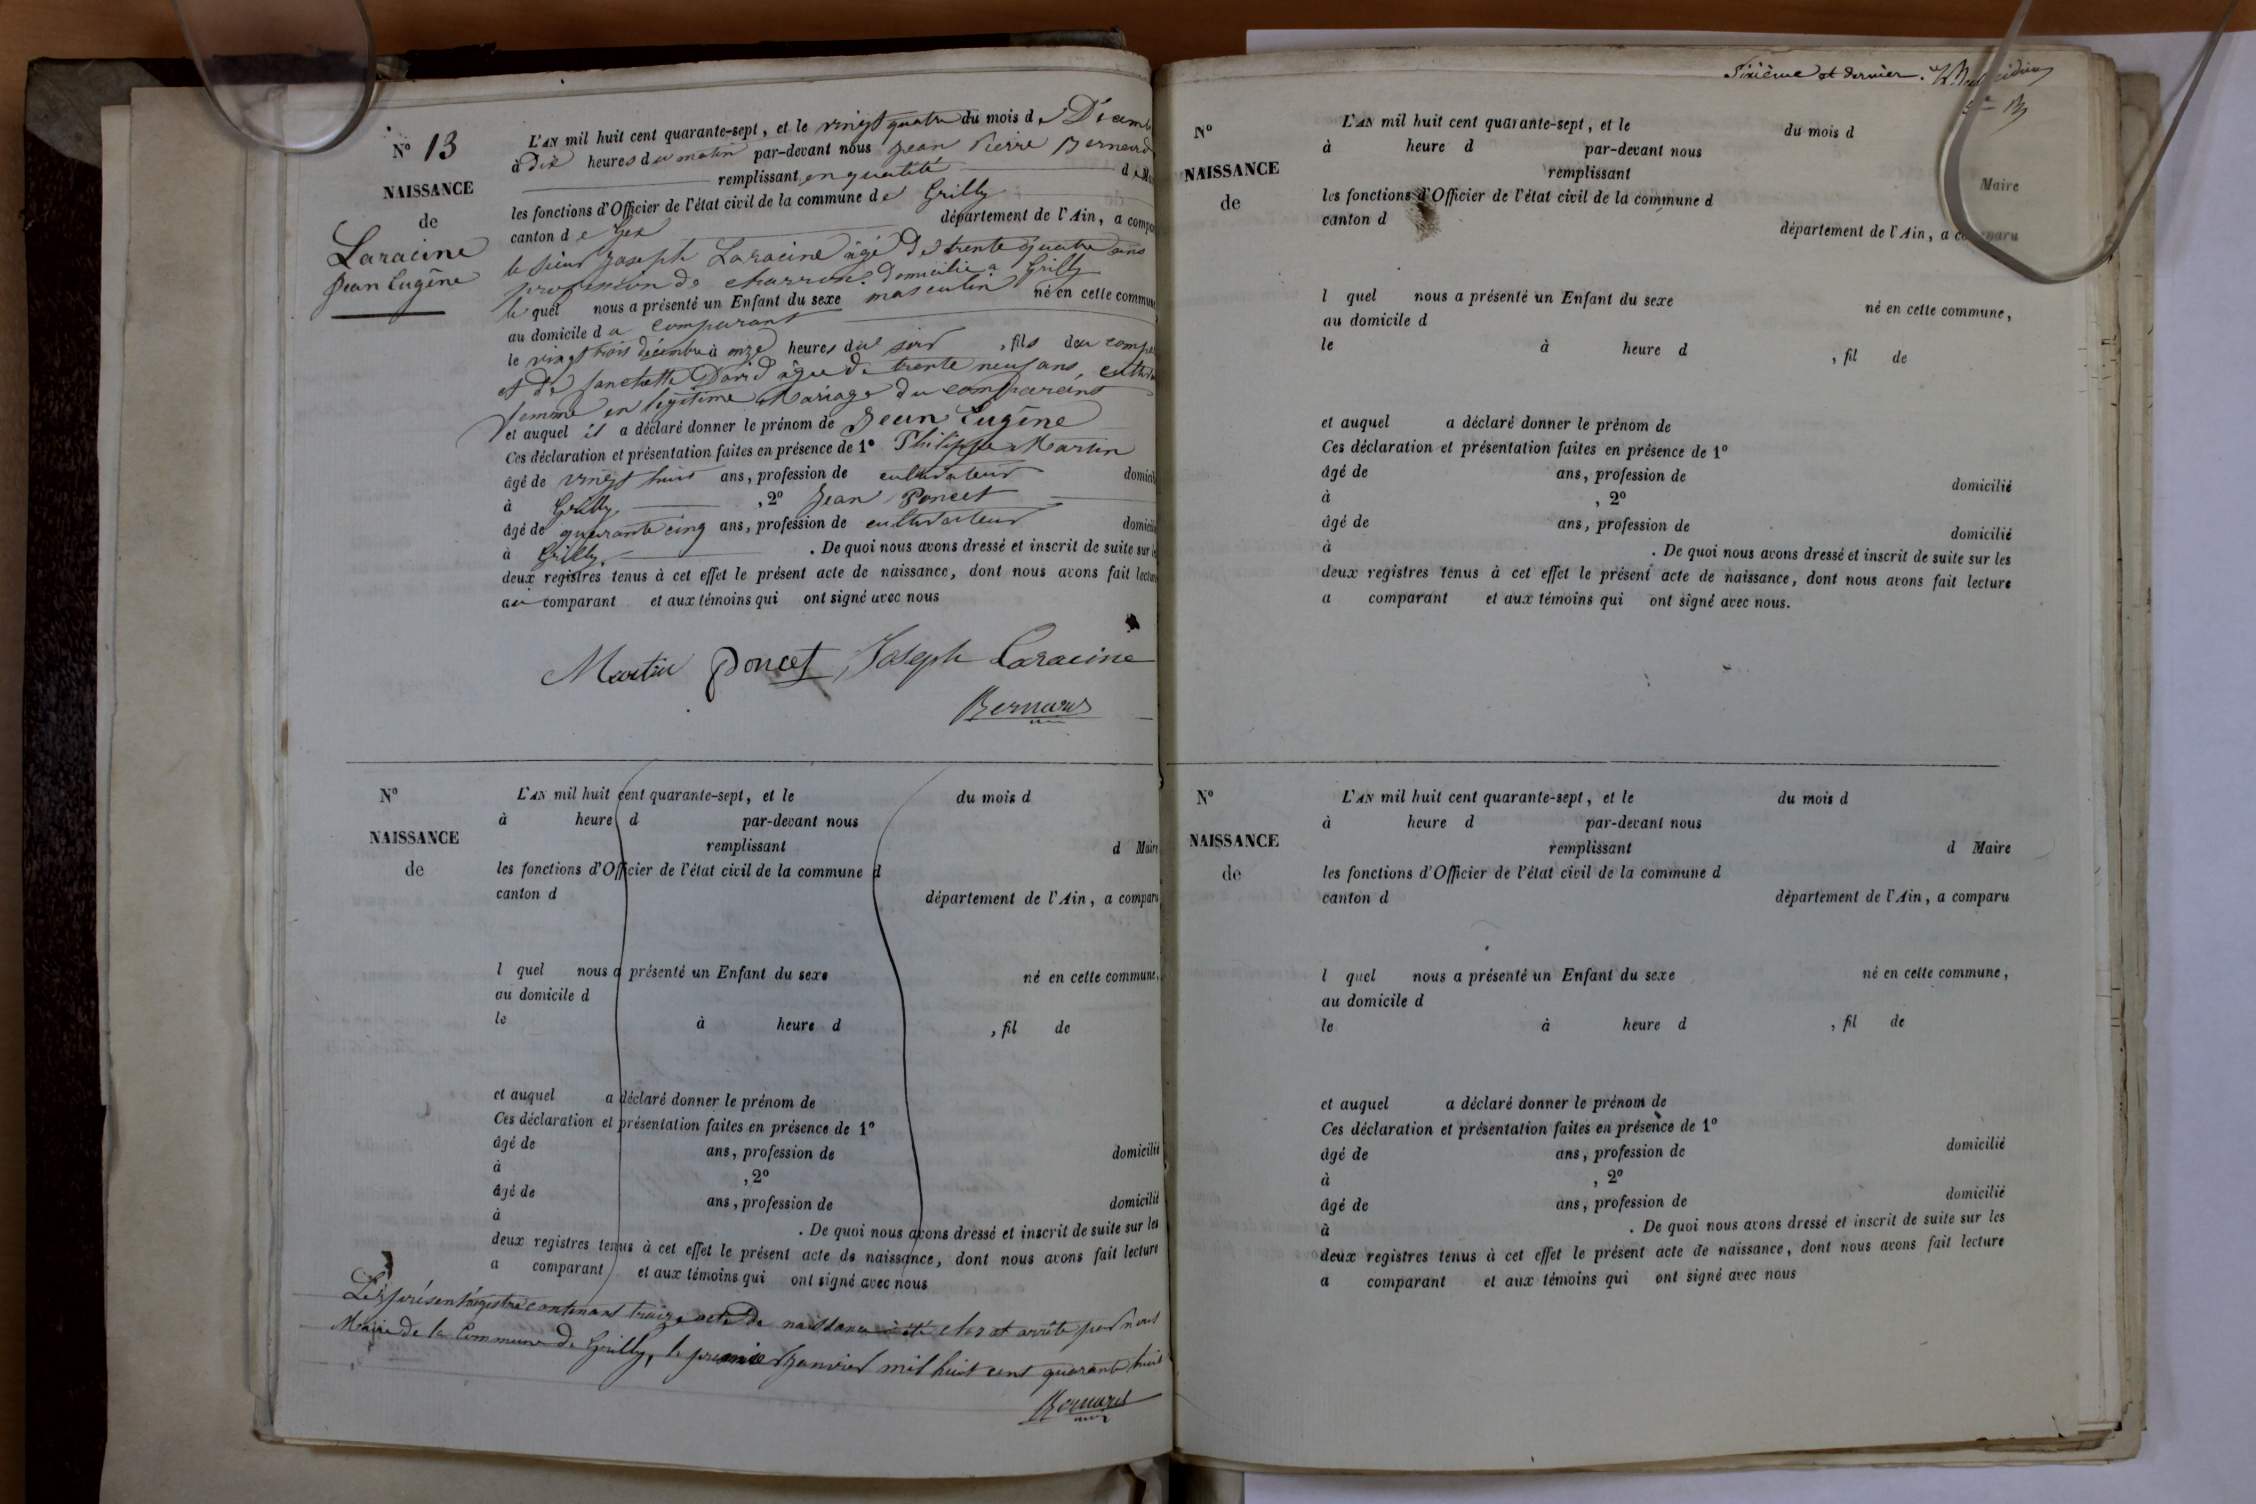 N° 13
NAISSANCE
de
Laracine
Jean Eugène
L'AN mil huit cent quarante-sept, et le vingt quatre du mois de Décemb
à Dix heures du matin par-devant nous Jean Pierre Bernard
remplissant en qualité de Ma
les fonctions d'Officier de l'état civil de la commune de Grilly
canton de Gex département de l'Ain, a compa
le sieur Joseph Laracine âgé de trente quatre ans
profession de charron domicilié à Grilly
le quel nous a présenté un Enfant du sexe masculin né en cette commune
au domicile du comparant
le vingt trois décembre à onze heures du soir, fils du comp
et de Fanchette David âgée de trente neuf ans, cultiv
femme en légitime Mariage du comparant
et auquel il a déclaré donner le prénom de Jean Eugène
Ces déclaration et présentation faites en présence de 1° Philippe Martin
âgé de vingt huit ans, profession de cultivateur domicil
à Grilly, 2° Jean Poncet
âgé de quarante cinq ans, profession de cultivateur domicilié
à Grilly. De quoi nous avons dressé et inscrit de suite sur le
deux registres tenus à cet effet le présent acte de naissance, dont nous avons fait lecture
au comparant et aux témoins qui ont signé avec nous
Martin Poncet Joseph Laracine
Bernard
N°
NAISSANCE
de
L'AN mil huit cent quarante-sept, et le du mois d
à heure d par-devant nous
remplissant d Maire
les fonctions d'Officier de l'état civil de la commune d
canton d département de l'Ain, a comparu
l quel nous a présenté un Enfant du sexe né en cette commune,
au domicile d
le à heure d , fil de
et auquel a déclaré donner le prénom de
Ces déclaration et présentation faites en présence de 1°
âgé de ans, profession de domicilié
à , 2°
âgé de ans, profession de domicilié
à . De quoi nous avons dressé et inscrit de suite sur les
deux registres tenus à cet effet le présent acte de naissance, dont nous avons fait lecture
a comparant et aux témoins qui ont signé avec nous
Le présent régistre contenant treize acte de naissance à été clos et arrêté par nous
Maire de la Commune de Grilly, le premier Janvier mil huit cent quarante huit
Bernard
Sixième et dernier.
N°
NAISSANCE
de
L'AN mil huit cent quarante-sept, et le du mois d
à heure d par-devant nous
remplissant Maire
les fonctions d'Officier de l'état civil de la commune d
canton d département de l'Ain, a comparu
l quel nous a présenté un Enfant du sexe né en cette commune,
au domicile d
le à heure d , fil de
et auquel a déclaré donner le prénom de
Ces déclaration et présentation faites en présence de 1°
âgé de ans, profession de domicilié
à , 2°
âgé de ans, profession de domicilié
à . De quoi nous avons dressé et inscrit de suite sur les
deux registres tenus à cet effet le présent acte de naissance, dont nous avons fait lecture
a comparant et aux témoins qui ont signé avec nous.
N°
NAISSANCE
de
L'AN mil huit cent quarante-sept, et le du mois d
à heure d par-devant nous
remplissant d Maire
les fonctions d'Officier de l'état civil de la commune d
canton d département de l'Ain, a comparu
l quel nous a présenté un Enfant du sexe né en cette commune,
au domicile d
le à heure d , fil de
et auquel a déclaré donner le prénom de
Ces déclaration et présentation faites en présence de 1°
âgé de ans, profession de domicilié
à , 2°
âgé de ans, profession de domicilié
à . De quoi nous avons dressé et inscrit de suite sur les
deux registres tenus à cet effet le présent acte de naissance, dont nous avons fait lecture
a comparant et aux témoins qui ont signé avec nous